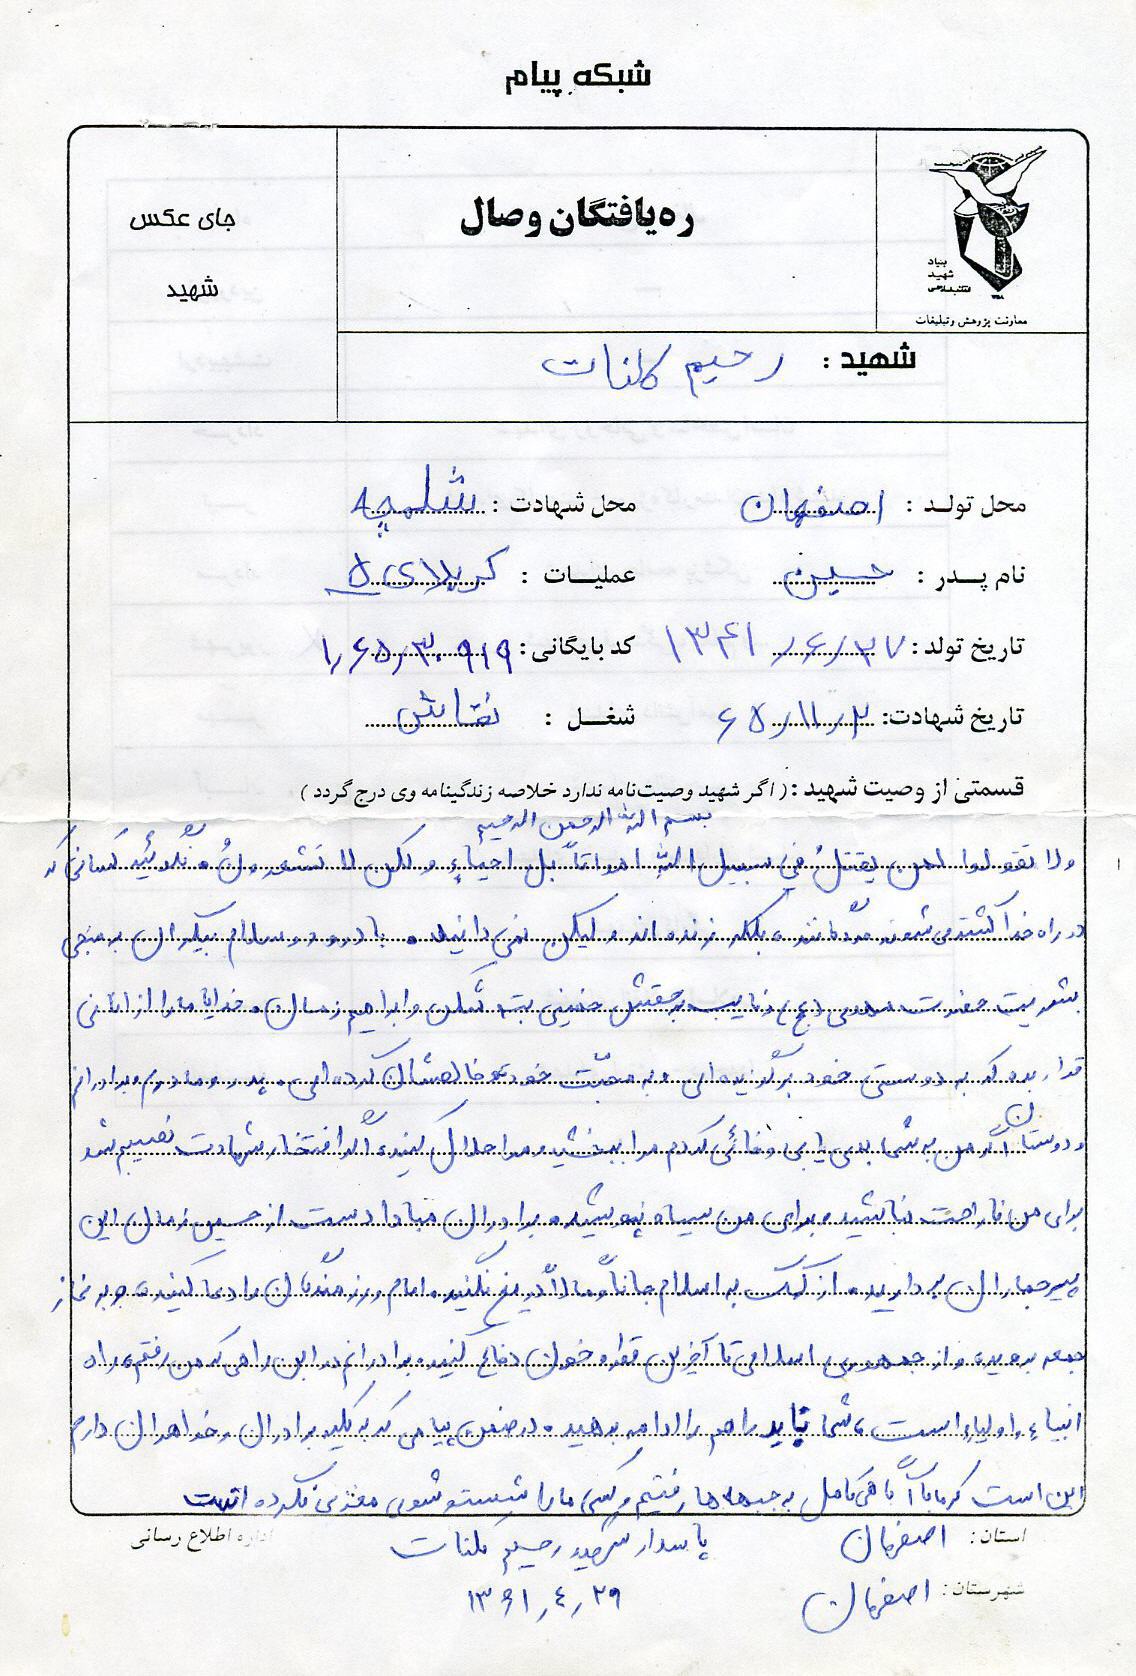 شبکه پیام
ره‌یافتگان وصال
جای عکس
شهید
بنیاد
شهید
انقلاب اسلامی
معاونت پژوهش و تبلیغات
شهید : رحیم کلنات
محل تولد : اصفهان محل شهادت : شلمچه
نام پدر : حسین عملیات : کربلای ۵
تاریخ تولد : ۱۳۴۱/۶/۲۷ کد بایگانی : ۱٫۶۵٫۳۰۹۱۹
تاریخ شهادت : ۶۵/۱۱/۲ شغل : نقاش
قسمتی از وصیت شهید : ( اگر شهید وصیت‌نامه ندارد خلاصه زندگینامه وی درج گردد )
بسم الله الرحمن الرحیم
ولا تقولوا لمن یقتلُ فی سبیل الله امواتاً بل احیاءٍ ولکن لا تشعرونُ • نگوئید کسانی که
در راه خدا کشته می‌شوند مرده‌اند، بلکه زنده‌اند و لیکن نمی‌دانید. با درود و سلام بیکران به منجی
بشریت حضرت مهدی (عج) و نایب برحقش خمینی بت شکن و ابراهیم زمان. خدایا ما را از آنانی
قرار بده که به دوستی خود برگزیده‌ای و به محبّت خود خالصشان کرده‌ای. پدر و مادرم و برادرانم
و دوستان اگر من به شما بدی یا بی وفائی کردم مرا ببخشید و مرا حلال کنید، اگر افتخار شهادت نصیبم شد
برای من ناراحت نباشید و برای من سیاه نپوشید. برادران مبادا دست از حسین زمان این
پیر جماران بردارید. از کمک به اسلام جاناً و مالاً دریغ نکنید. امام و رزمندگان را دعا کنید، و به نماز
جمعه بروید، و از جمهوری اسلامی تا آخرین قطره خون دفاع کنید. برادرانم در این راهی که من رفتم، راه
انبیاء و اولیاء است، شما باید راهم را ادامه بدهید. در ضمن پیامی که به کلیه برادران و خواهران دارم
این است که ما با آگاهی کامل به جبهه‌ها رفتیم و کسی ما را شستشوی مغزی نکرده است
استان : اصفهان پاسدار شهید رحیم کلنات اداره اطلاع رسانی
شهرستان : اصفهان ۱۳۶۱٫۴٫۲۹